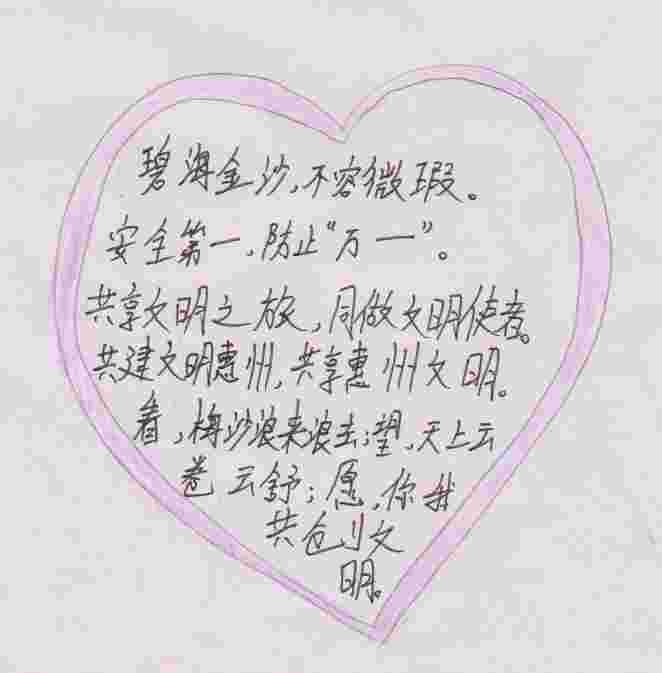 碧海金沙,不容微瑕。
安全第一,防止“万一”。
共享文明之旅,同做文明使者。
共建文明惠州,共享惠州文明。
看,梅沙浪来浪去;望,天上云
卷云舒;愿,你我
共创文
明。